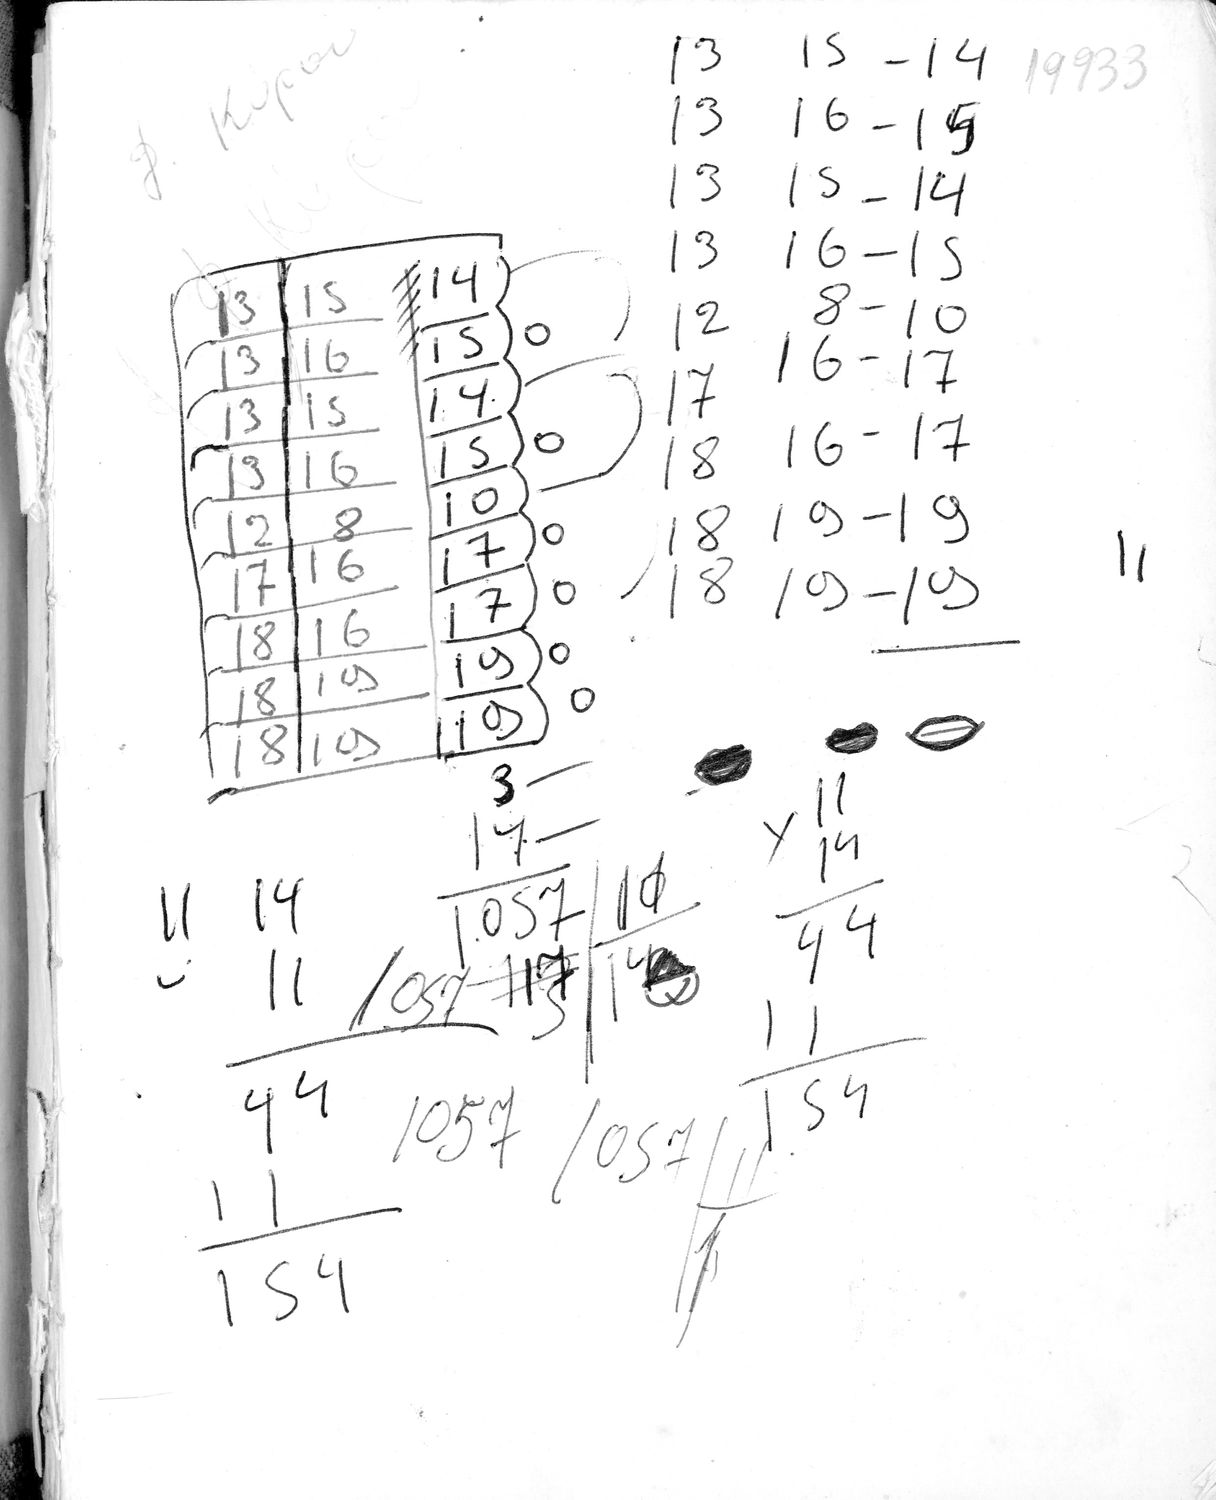 13 15 - 14 19933
13 16 - 15
13 15 - 14
13 16 - 15
12 8 - 10
17 16 - 17
18 16 - 17
18 19 - 19
18 19 - 19
11
13 15 14
13 16 15 0
13 15 14
13 16 15 0
12 8 10
17 16 17 0
18 16 17 0
18 19 19 0
18 19 19 0
3 —
14 —
1057 10
1057 117 14
5
11 14
11
44
11
154
x 11
14
44
11
154
1057 1057 11
1